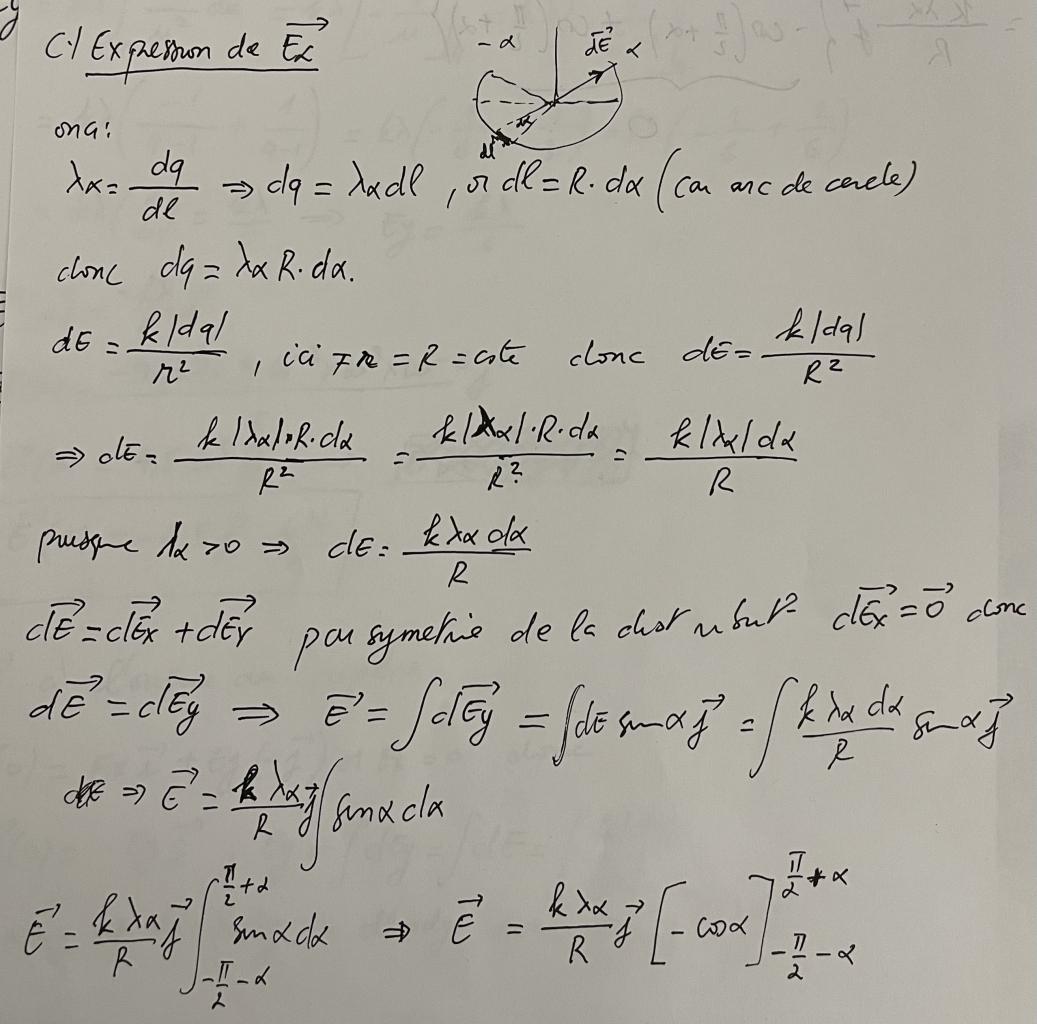 C/ Expression de \vec{E_α}
-α \vec{dE} α
dα
dl
ona:
λα = dq/dl ⇒ dq = λα dl , or dl = R. dα (car arc de cercle)
donc dq = λα R. dα.
dE = k|dq|/r² , ici r = R = cste donc dE = k|dq|/R²
⇒ dE = k|λα|.R.dα/R² = k|λα|.R.dα/R² = k|λα|dα/R
puisque λα >0 ⇒ dE = k λα dα/R
\vec{dE} = \vec{dEx} + \vec{dEy} par symetrie de la distribut° \vec{dEx} = \vec{0} donc
\vec{dE} = \vec{dEy} ⇒ \vec{E} = ∫\vec{dEy} = ∫dE sinα \vec{j} = ∫ k λα dα/R sinα \vec{j}
⇒ \vec{E} = k λα/R \vec{j} ∫ sinα dα
\vec{E} = k λα/R \vec{j} ∫_{-π/2-α}^{π/2+α} sinα dα ⇒ \vec{E} = k λα/R \vec{j} [-cosα]_{-π/2-α}^{π/2+α}